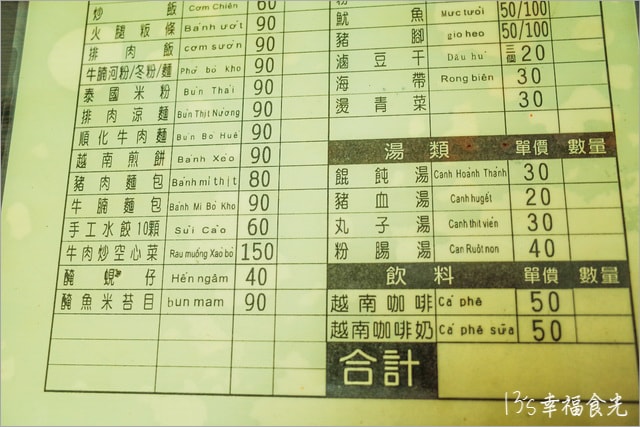 炒飯 Cơm Chiên 60
火腿粄條 Bánh ướt 90
排肉飯 cơm sườn 90
牛腩河粉/冬粉/麵 Phở bò kho 90
泰國米粉 Bún Thái 90
排肉涼麵 Bún Thịt Nướng 90
順化牛肉麵 Bún Bò Huế 90
越南煎餅 Bánh Xèo 90
豬肉麵包 Bánh mì thịt 80
牛腩麵包 Bánh Mì Bò Kho 90
手工水餃10顆 Sủi Cảo 60
牛肉炒空心菜 Rau muống Xào bò 150
醃蜆仔 Hến ngâm 40
醃魚米苔目 bun mam 90
魷魚 Mực tươi 50/100
豬腳 giò heo 50/100
滷豆干 Dâu hủ 三個20
海帶 Rong biển 30
燙青菜 30
湯類 單價 數量
餛飩湯 Canh Hoành Thánh 30
豬血湯 Canh huyết 20
丸子湯 Canh thịt viên 30
粉腸湯 Can Ruột non 40
飲料 單價 數量
越南咖啡 Cà phê 50
越南咖啡奶 Cà phê sữa 50
合計
13's幸福食光